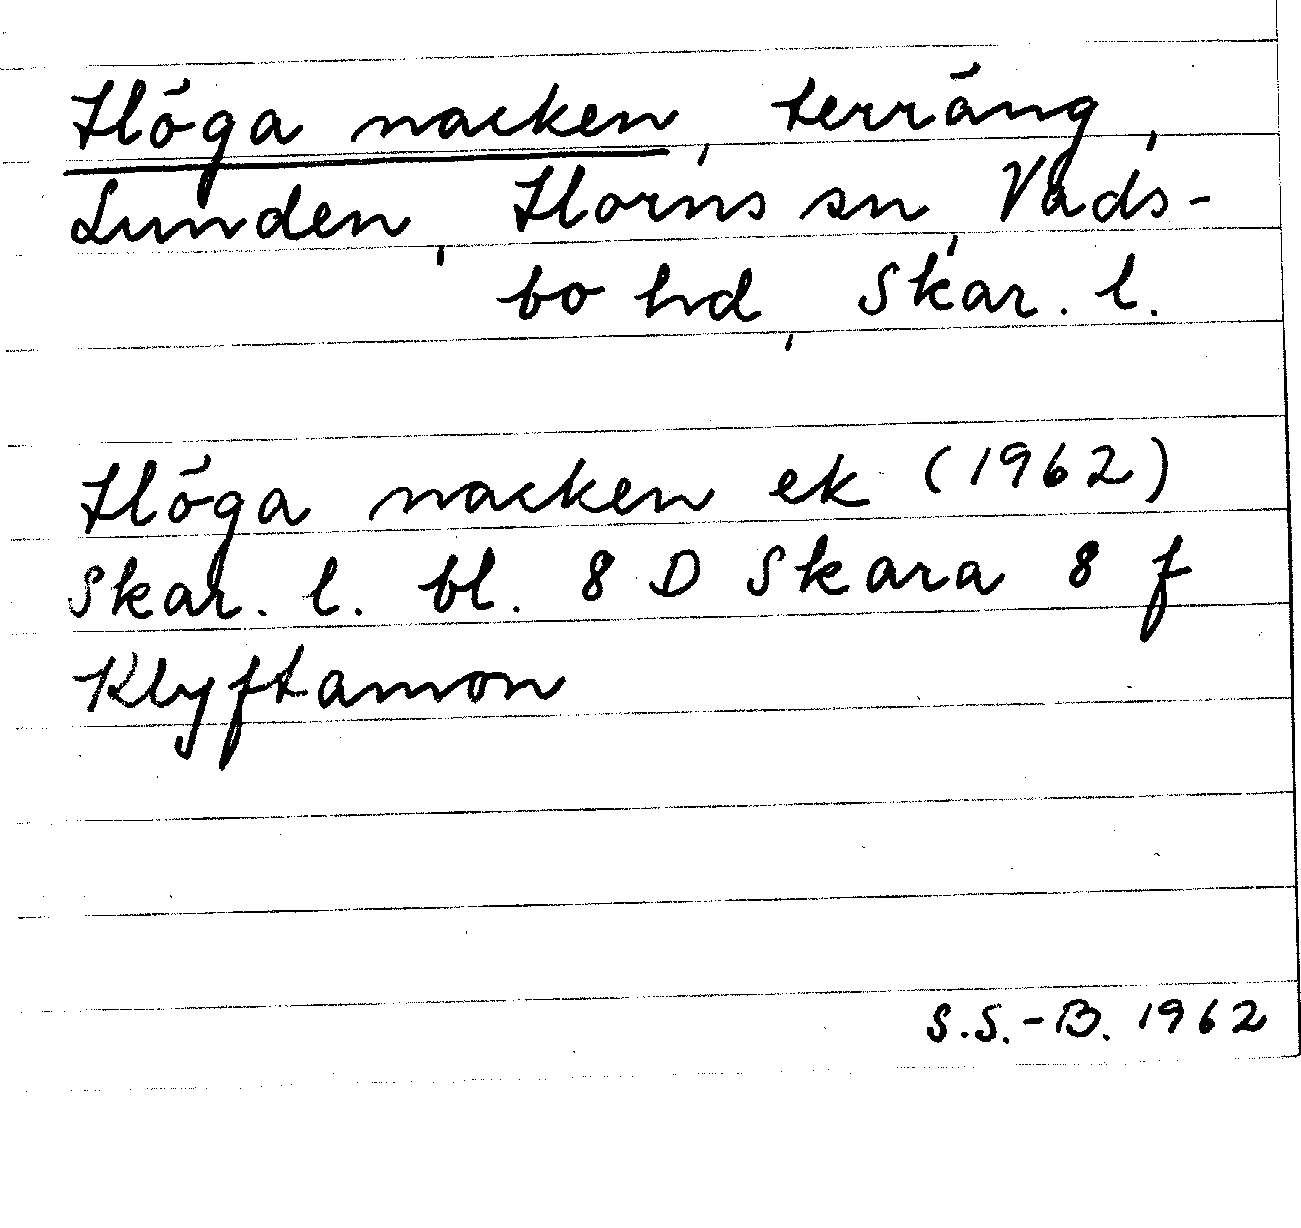 Höga nacken, terräng,
Lunden, Horns sn, Vads-
bo hd, Skar. l.
Höga nacken ek (1962)
Skar. l. bl. 8 D Skara 8 f
Klyftamon
S.S.-B. 1962